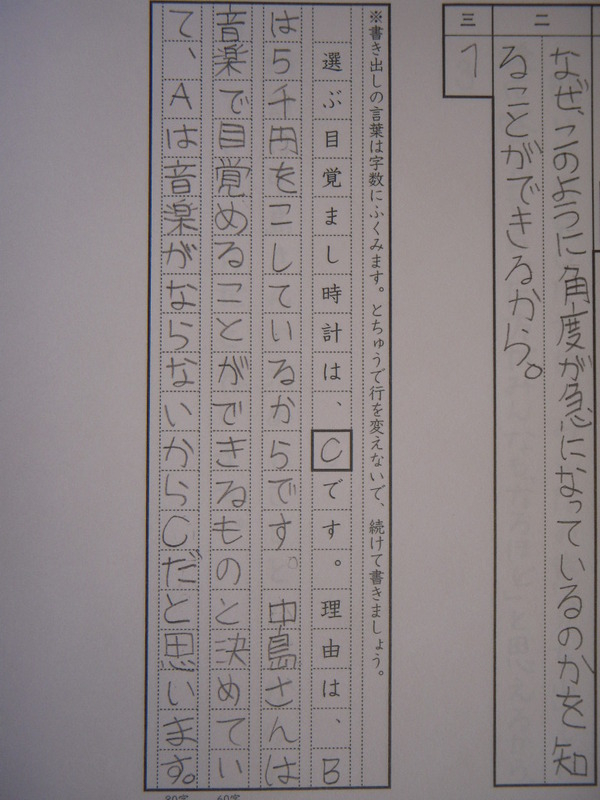 二
なぜ、このように角度が急になっているのかを知
ることができるから。
三
1
※書き出しの言葉は字数にふくみます。とちゅうで行を変えないで、続けて書きましょう。
選ぶ目覚まし時計は、Cです。理由は、B
は5千円をこしているからです。中島さんは
音楽で目覚めることができるものと決めてい
て、Aは音楽がならないからCだと思います。